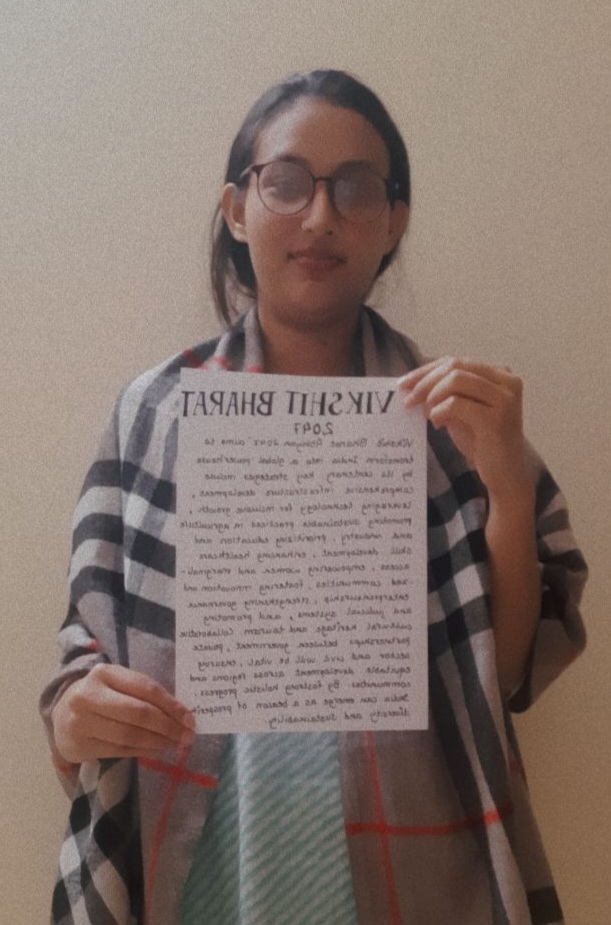 VIKSHIT BHARAT
2047
Vikshit Bharat Abhiyan 2047 aims to
transform India into a global powerhouse
by its centenary. Key strategies include
comprehensive infrastructure development,
leveraging technology for inclusive growth,
promoting sustainable practices in agriculture
and industry, prioritizing education and
skill development, enhancing healthcare
access, empowering women and marginal-
-zed communities, fostering innovation and
entrepreneurship, strengthening governance
and judicial systems, and promoting
cultural heritage and tourism. Collaborative
partnerships between government, private
sector and civil will be vital, ensuring
equitable development across regions and
communities. By fostering holistic progress,
India can emerge as a beacon of prosperity
diversity and sustainability.